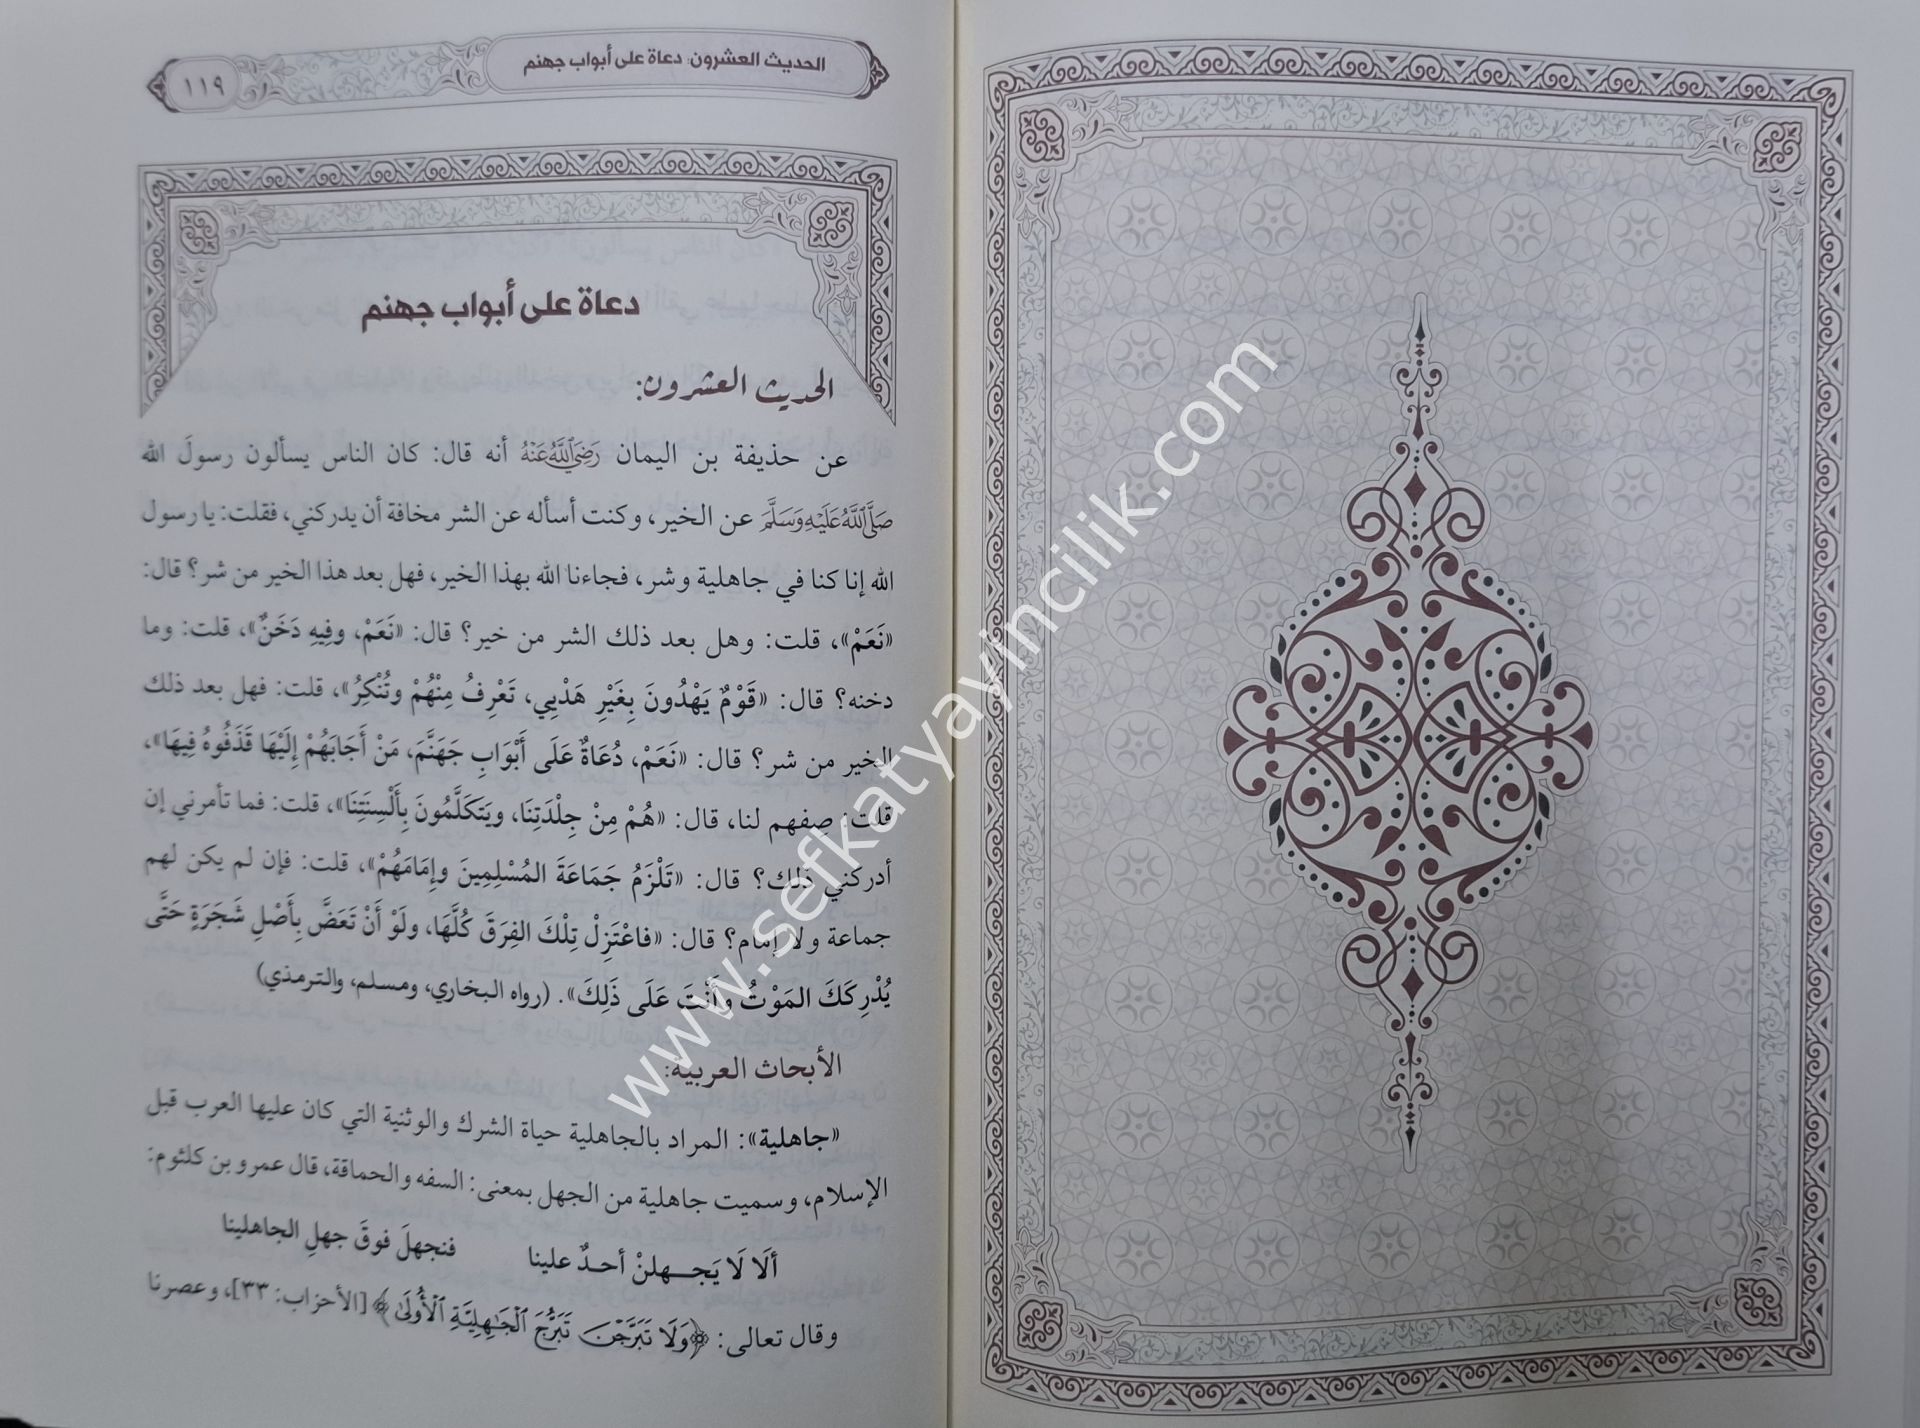 الحديث العشرون: دعاة على أبواب جهنم
١١٩
دعاة على أبواب جهنم
الحديث العشرون:
عن حذيفة بن اليمان رَضِيَ اللَّهُ عَنْهُ أنه قال: كان الناس يسألون رسولَ الله
صَلَّى اللَّهُ عَلَيْهِ وَسَلَّمَ عن الخير، وكنت أسأله عن الشر مخافة أن يدركني، فقلت: يا رسول
الله إنا كنا في جاهلية وشر، فجاءنا الله بهذا الخير، فهل بعد هذا الخير من شر؟ قال:
«نَعَمْ»، قلت: وهل بعد ذلك الشر من خير؟ قال: «نَعَمْ، وفِيهِ دَخَنٌ»، قلت: وما
دخنه؟ قال: «قَوْمٌ يَهْدُونَ بِغَيْرِ هَدْيِي، تَعْرِفُ مِنْهُمْ وتُنْكِرُ»، قلت: فهل بعد ذلك
الخير من شر؟ قال: «نَعَمْ، دُعَاةٌ عَلَى أَبْوَابِ جَهَنَّمَ، مَنْ أَجَابَهُمْ إِلَيْهَا قَذَفُوهُ فِيهَا»،
قلت: صِفهم لنا، قال: «هُمْ مِنْ جِلْدَتِنَا، ويَتَكَلَّمُونَ بِأَلْسِنَتِنَا»، قلت: فما تأمرني إن
أدركني ذلك؟ قال: «تَلْزَمُ جَمَاعَةَ المُسْلِمِينَ وإِمَامَهُمْ»، قلت: فإن لم يكن لهم
جماعة ولا إمام؟ قال: «فاعْتَزِلْ تِلْكَ الفِرَقَ كُلَّهَا، ولَوْ أَنْ تَعَضَّ بِأَصْلِ شَجَرَةٍ حَتَّى
يُدْرِكَكَ المَوْتُ وأَنْتَ عَلَى ذَلِكَ». (رواه البخاري، ومسلم، والترمذي)
الأبحاث العربية:
«جاهلية»: المراد بالجاهلية حياة الشرك والوثنية التي كان عليها العرب قبل
الإسلام، وسميت جاهلية من الجهل بمعنى: السفه والحماقة، قال عمرو بن كلثوم:
ألَا لَا يَجـهلنْ أحـدٌ علينا فنجهلَ فوقَ جهلِ الجاهلينا
وقال تعالى: ﴿وَلَا تَبَرَّجْنَ تَبَرُّجَ ٱلْجَٰهِلِيَّةِ ٱلْأُولَىٰ﴾ [الأحزاب: ٣٣]، وعصرنا
www.sefkatyayincilik.com